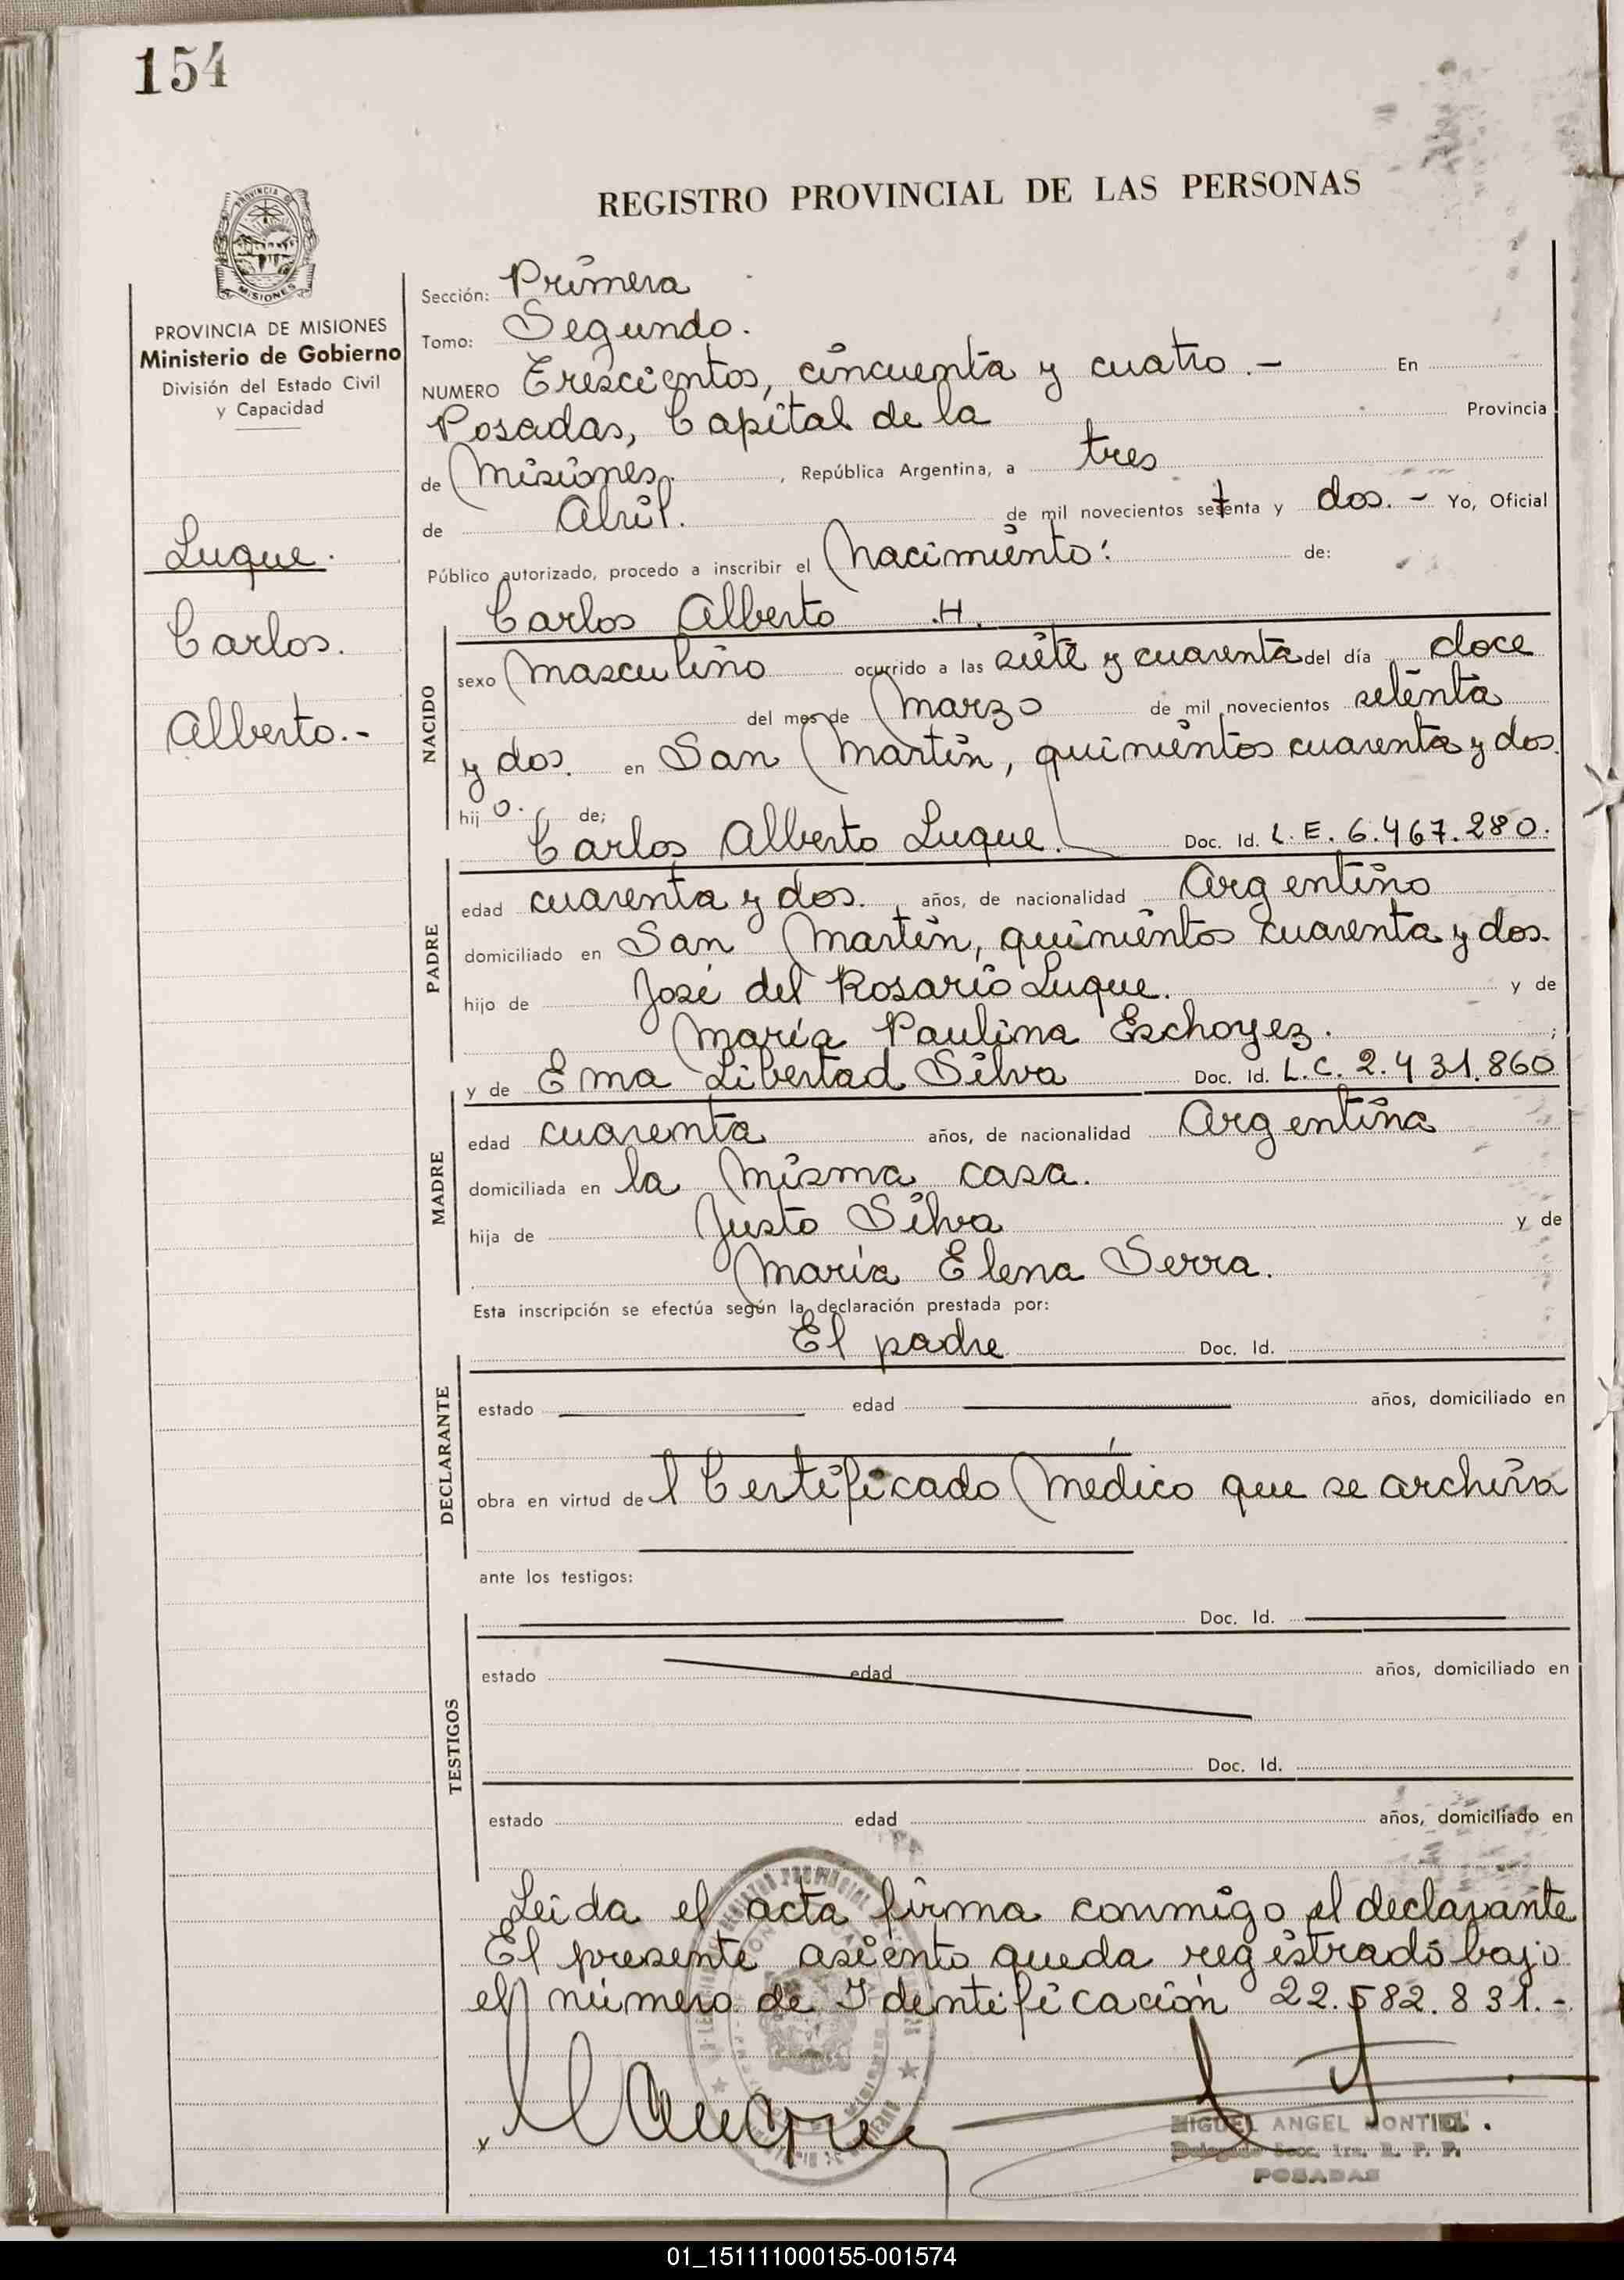 154
REGISTRO PROVINCIAL DE LAS PERSONAS
PROVINCIA DE MISIONES
Ministerio de Gobierno
División del Estado Civil
y Capacidad
Luque.
Carlos.
Alberto.-
Sección: Primera
Tomo: Segundo.
NUMERO Trescientos, cincuenta y cuatro.- En
Posadas, Capital de la Provincia
de Misiones. , República Argentina, a tres
de Abril. de mil novecientos setenta y dos.- Yo, Oficial
Público autorizado, procedo a inscribir el Nacimiento: de:
Carlos Alberto .H.
NACIDO
sexo Masculino ocurrido a las siete y cuarenta del día doce
del mes de Marzo de mil novecientos setenta
y dos. en San Martín, quinientos cuarenta y dos.
hijo. de;
Carlos Alberto Luque. Doc. Id. L.E. 6.467.280.
PADRE
edad cuarenta y dos. años, de nacionalidad Argentino
domiciliado en San Martín, quinientos cuarenta y dos.
hijo de José del Rosario Luque. y de
María Paulina Eschoyez. ;
y de Ema Libertad Silva Doc. Id. L.C. 2.431.860
MADRE
edad cuarenta años, de nacionalidad Argentina
domiciliada en la misma casa.
hija de Justo Silva y de
María Elena Serra.
Esta inscripción se efectúa según la declaración prestada por:
El padre Doc. Id.
DECLARANTE
estado edad años, domiciliado en
obra en virtud del Certificado Médico que se archiva
ante los testigos:
Doc. Id.
TESTIGOS
estado edad años, domiciliado en
Doc. Id.
estado edad años, domiciliado en
Leida el acta firma conmigo el declarante
El presente asiento queda registrado bajo
el número de Identificación 22.582.831.-
MIGUEL ANGEL MONTIEL.
Delegado Secc. 1ra. R. P. P.
POSADAS
01_151111000155-001574